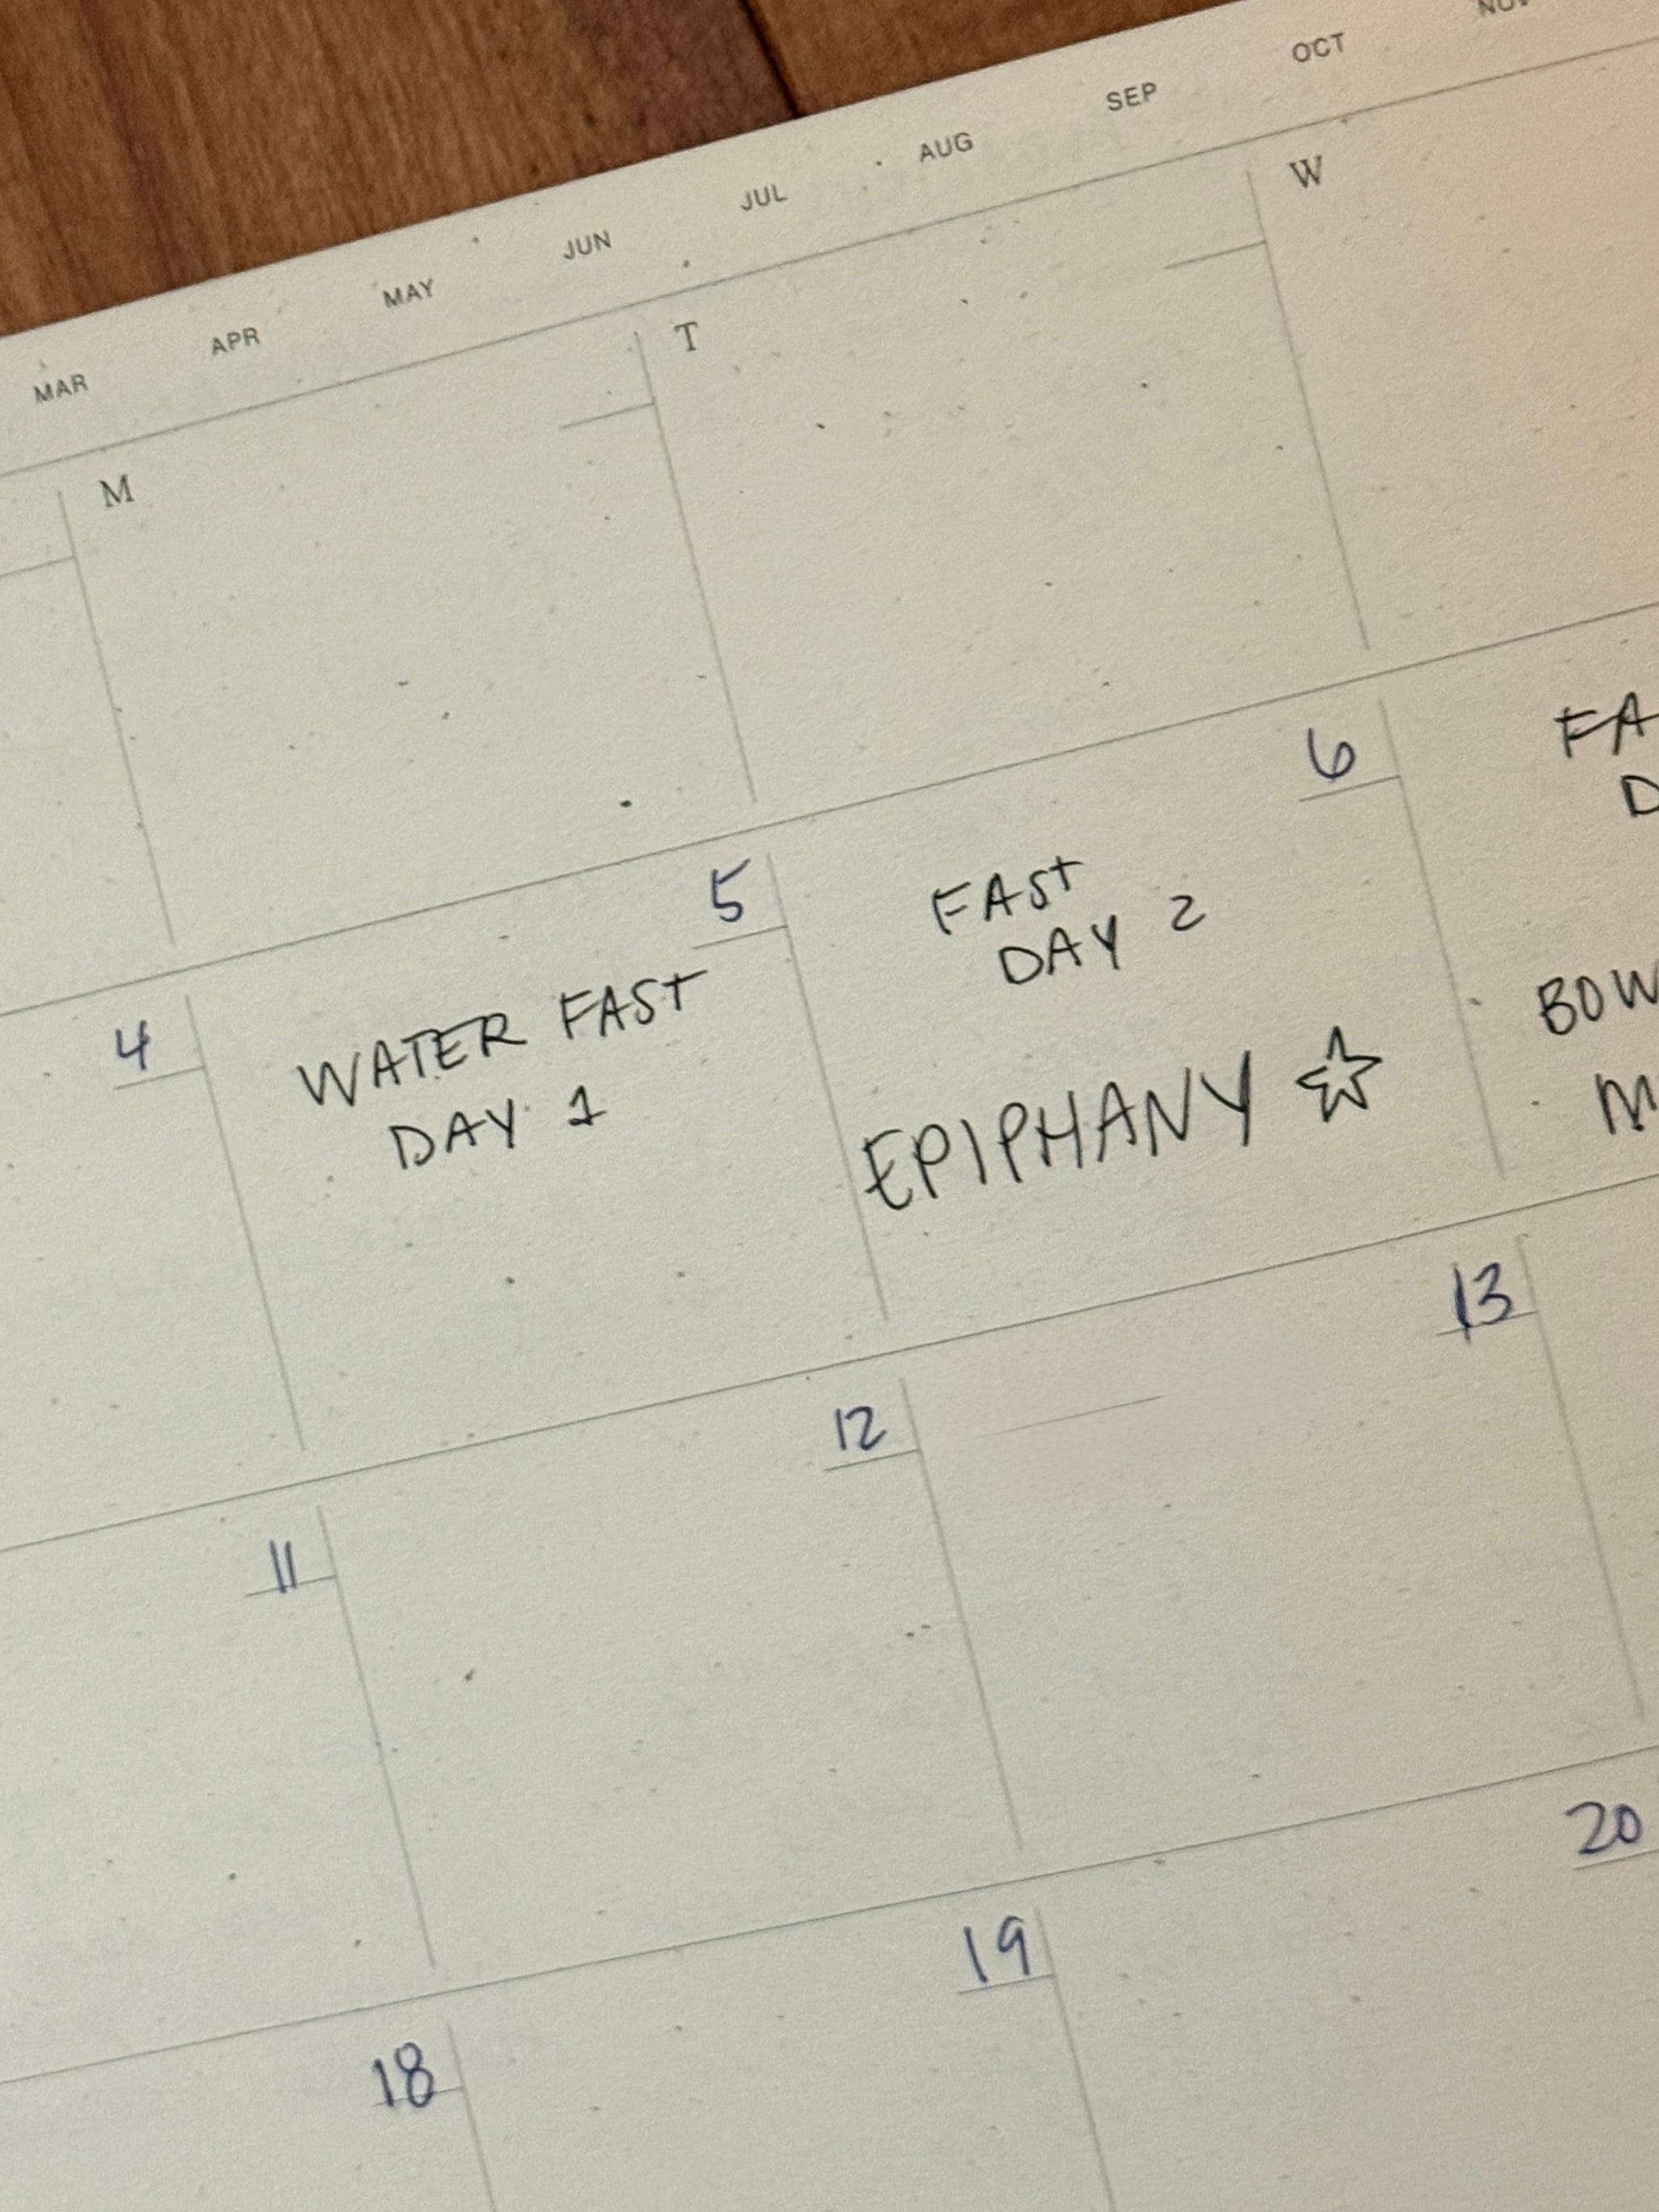 MAR APR MAY JUN JUL AUG SEP OCT NOV
M T W
4 5 6
WATER FAST
DAY 1
FAST
DAY 2
EPIPHANY
11 12 13
18 19 20